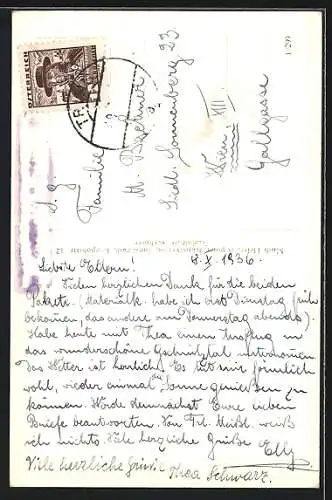 ÖSTERREICH
TR
S. g.
Familie
M.
Siedl. Sonnenberg 23
Wien XIII
Gallgasse
1/299
8. X. 1936.
Liebste Eltern!
Vielen herzlichen Dank für die beiden
Pakete. (habe ich erst Dienstag früh
bekommen, das andere am Donnerstag abends).
Habe heute mit Thea einen Ausflug in
das wunderschöne Gschnitztal unternommen.
Das Wetter ist herrlich. Es tut mir förmlich
wohl, wieder einmal die Sonne genießen zu
können. Werde demnächst Eure lieben
Briefe beantworten. Von Frl. weiß
ich nichts. Viele herzliche Grüße Elly
Viele herzliche Grüße Thea Schwarz.